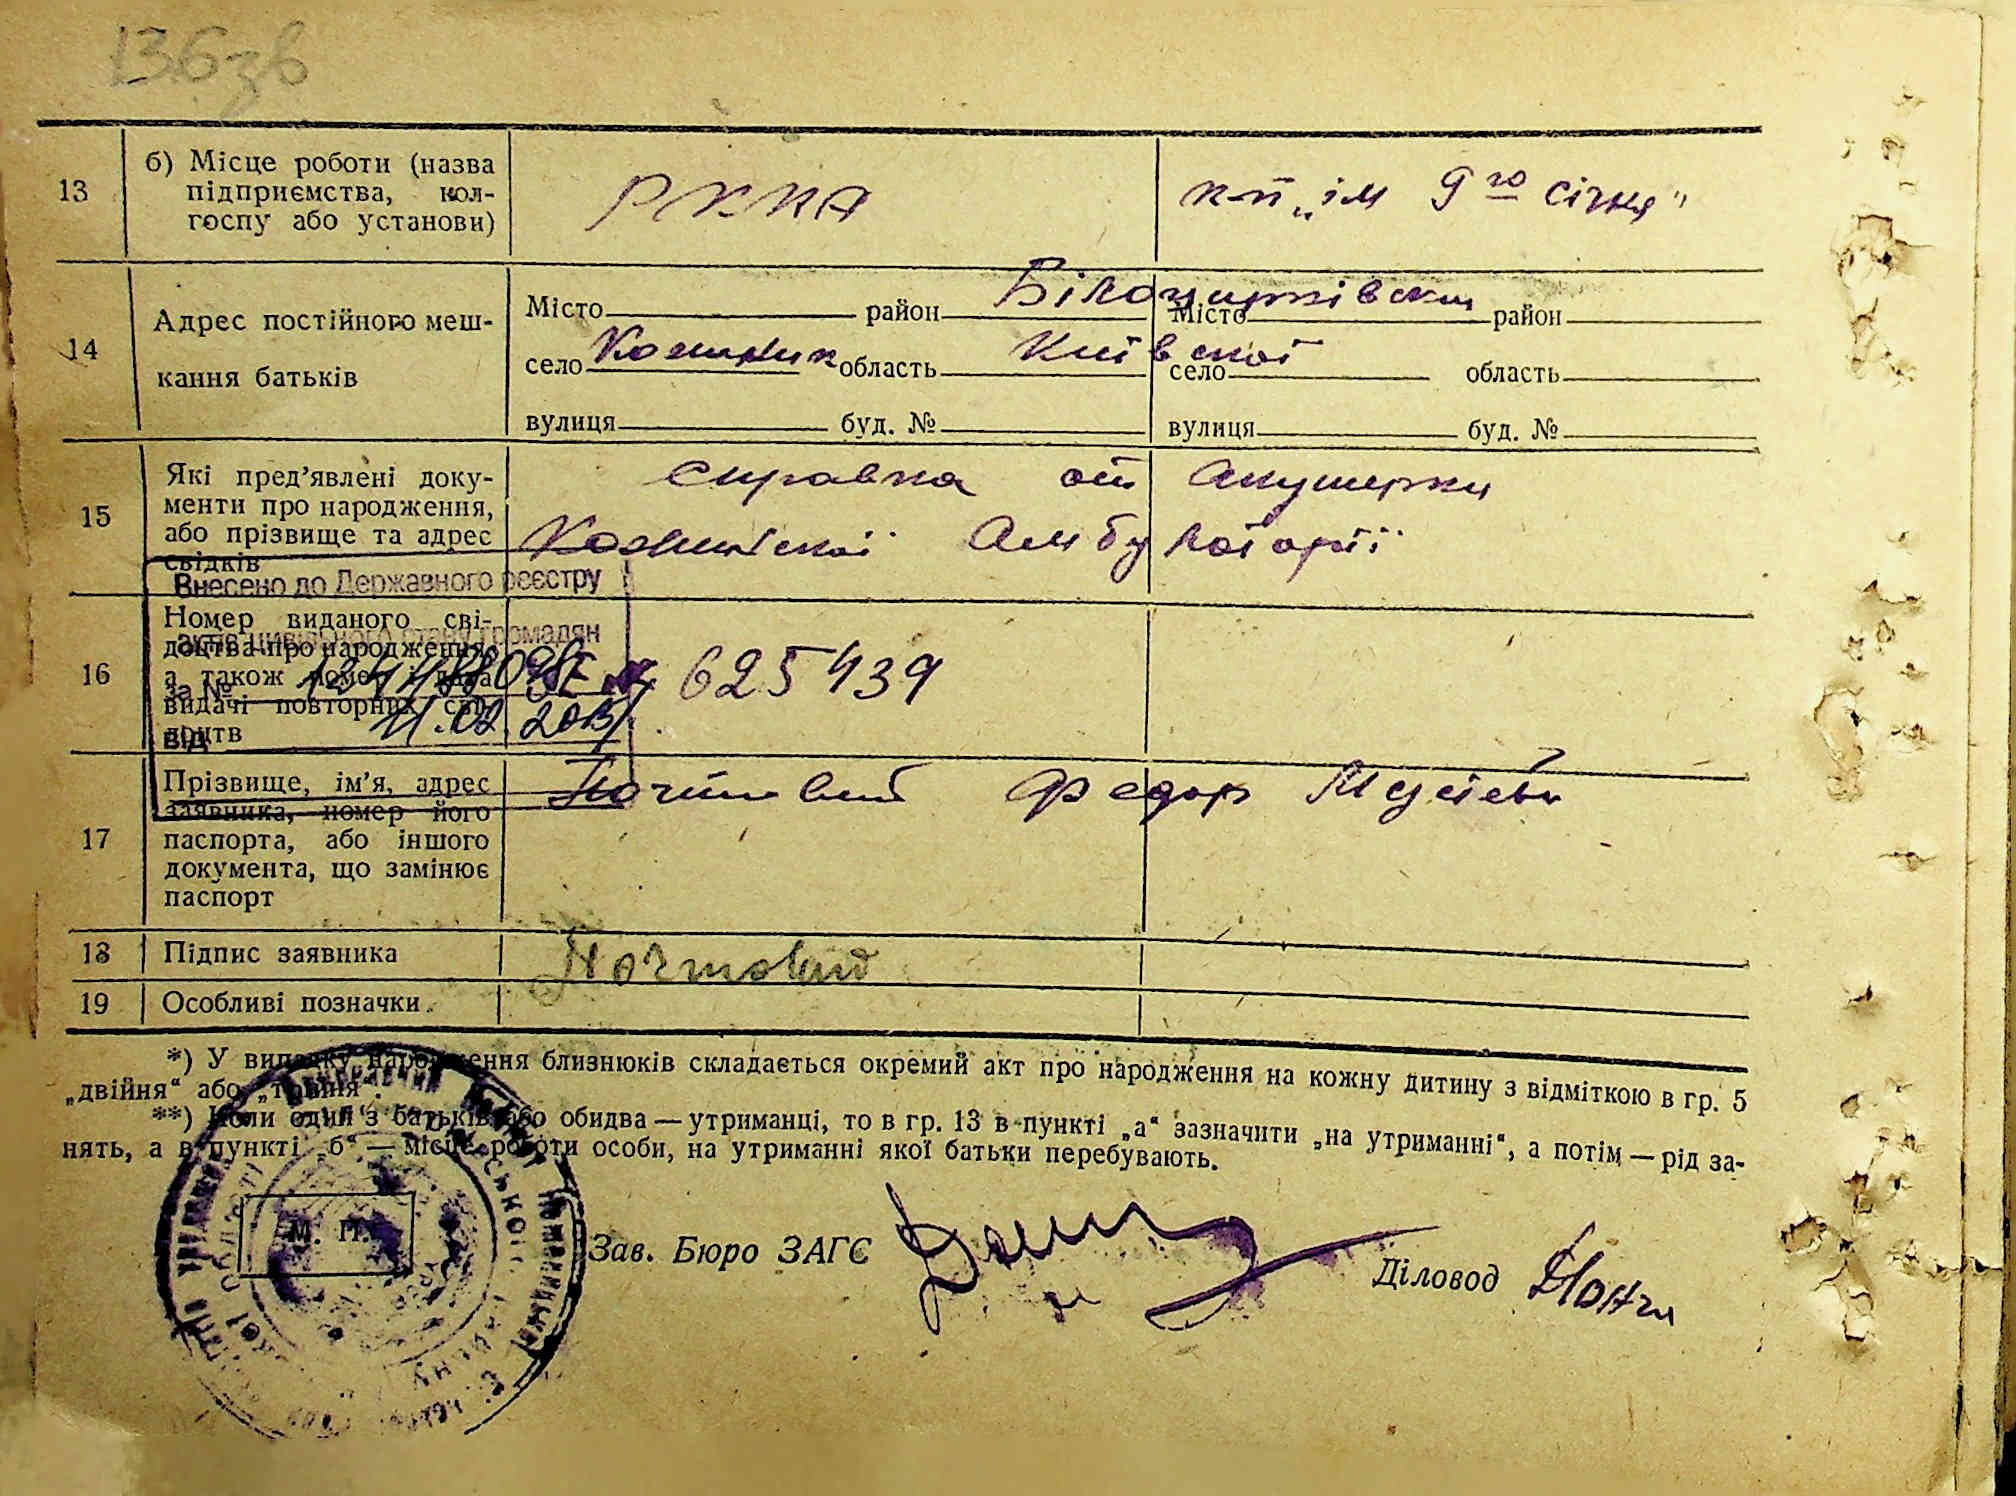 136 зв
13
б) Місце роботи (назва
підприємства, кол-
госпу або установи)
РККА
кп „ім 9го січня"
14
Адрес постійного меш-
кання батьків
Місто район Білоцерківськ
Місто район
село область Київской
село область
вулиця буд. №
вулиця буд. №
15
Які пред'явлені доку-
менти про народження,
або прізвище та адрес
свідків
справка от Акушерки
Амбулаторії
Внесено до Державного реєстру
актів цивільного стану громадян
за №
11.02.2013
від
16
Номер виданого сві-
доцтва про народження,
а також номер і дата
видачі повторних сві-
доцтв
625439
17
Прізвище, ім'я, адрес
заявника, номер його
паспорта, або іншого
документа, що замінює
паспорт
Почтовий Федор Мусієви
18
Підпис заявника
Почтовий
19
Особливі позначки
*) У випадку народження близнюків складається окремий акт про народження на кожну дитину з відміткою в гр. 5
„двійня“ або „трійня“.
**) Коли один з батьків або обидва — утриманці, то в гр. 13 в пункті „а“ зазначити „на утриманні“, а потім — рід за-
нять, а в пункті „б“ — місце роботи особи, на утриманні якої батьки перебувають.
М. П.
Зав. Бюро ЗАГС
Діловод